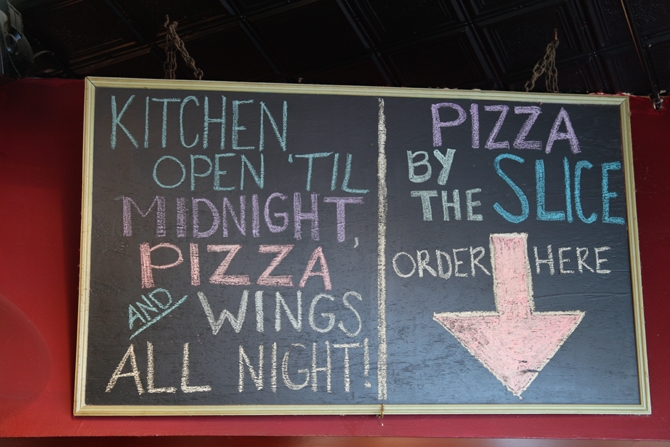 KITCHEN
OPEN 'TIL
MIDNIGHT,
PIZZA
AND WINGS
ALL NIGHT!
PIZZA
BY
THE SLICE
ORDER HERE